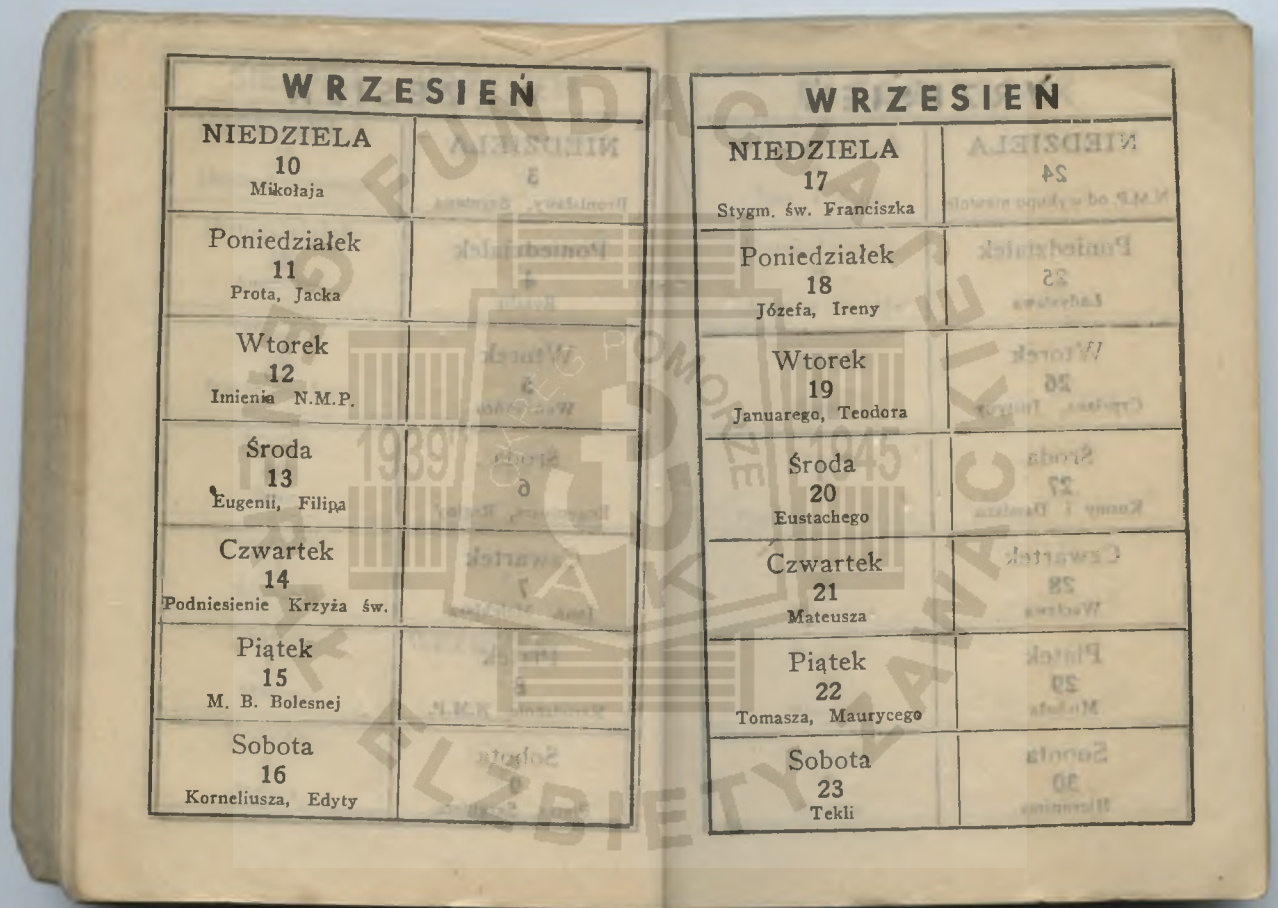 WRZESIEŃ
NIEDZIELA
10
Mikołaja
Poniedziałek
11
Prota, Jacka
Wtorek
12
Imienia N.M.P.
Środa
13
Eugenii, Filipa
Czwartek
14
Podniesienie Krzyża św.
Piątek
15
M. B. Bolesnej
Sobota
16
Korneliusza, Edyty
WRZESIEŃ
NIEDZIELA
17
Stygm. św. Franciszka
Poniedziałek
18
Józefa, Ireny
Wtorek
19
Januarego, Teodora
Środa
20
Eustachego
Czwartek
21
Mateusza
Piątek
22
Tomasza, Maurycego
Sobota
23
Tekli
FUNDACJA
GENERAŁ
ELŻBIETY ZAWACKIEJ
OKRĘG POMORZE
1939
1945
AK